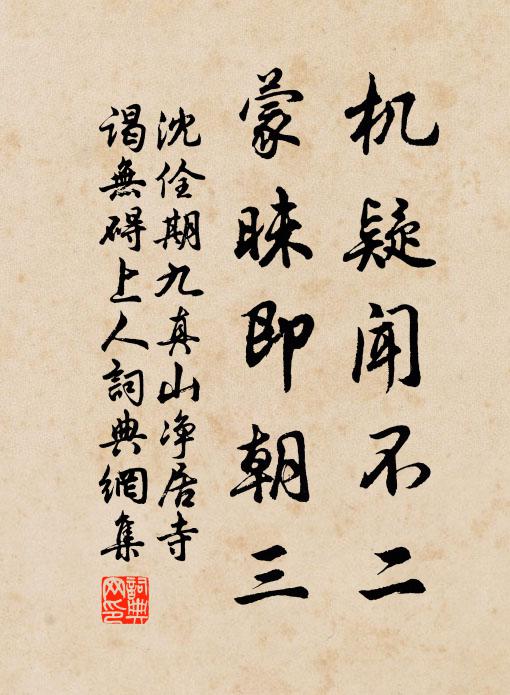 机疑闻不二
蒙昧即朝三
沈佺期九真山净居寺
谒無碍上人詞典網集
詞典网印